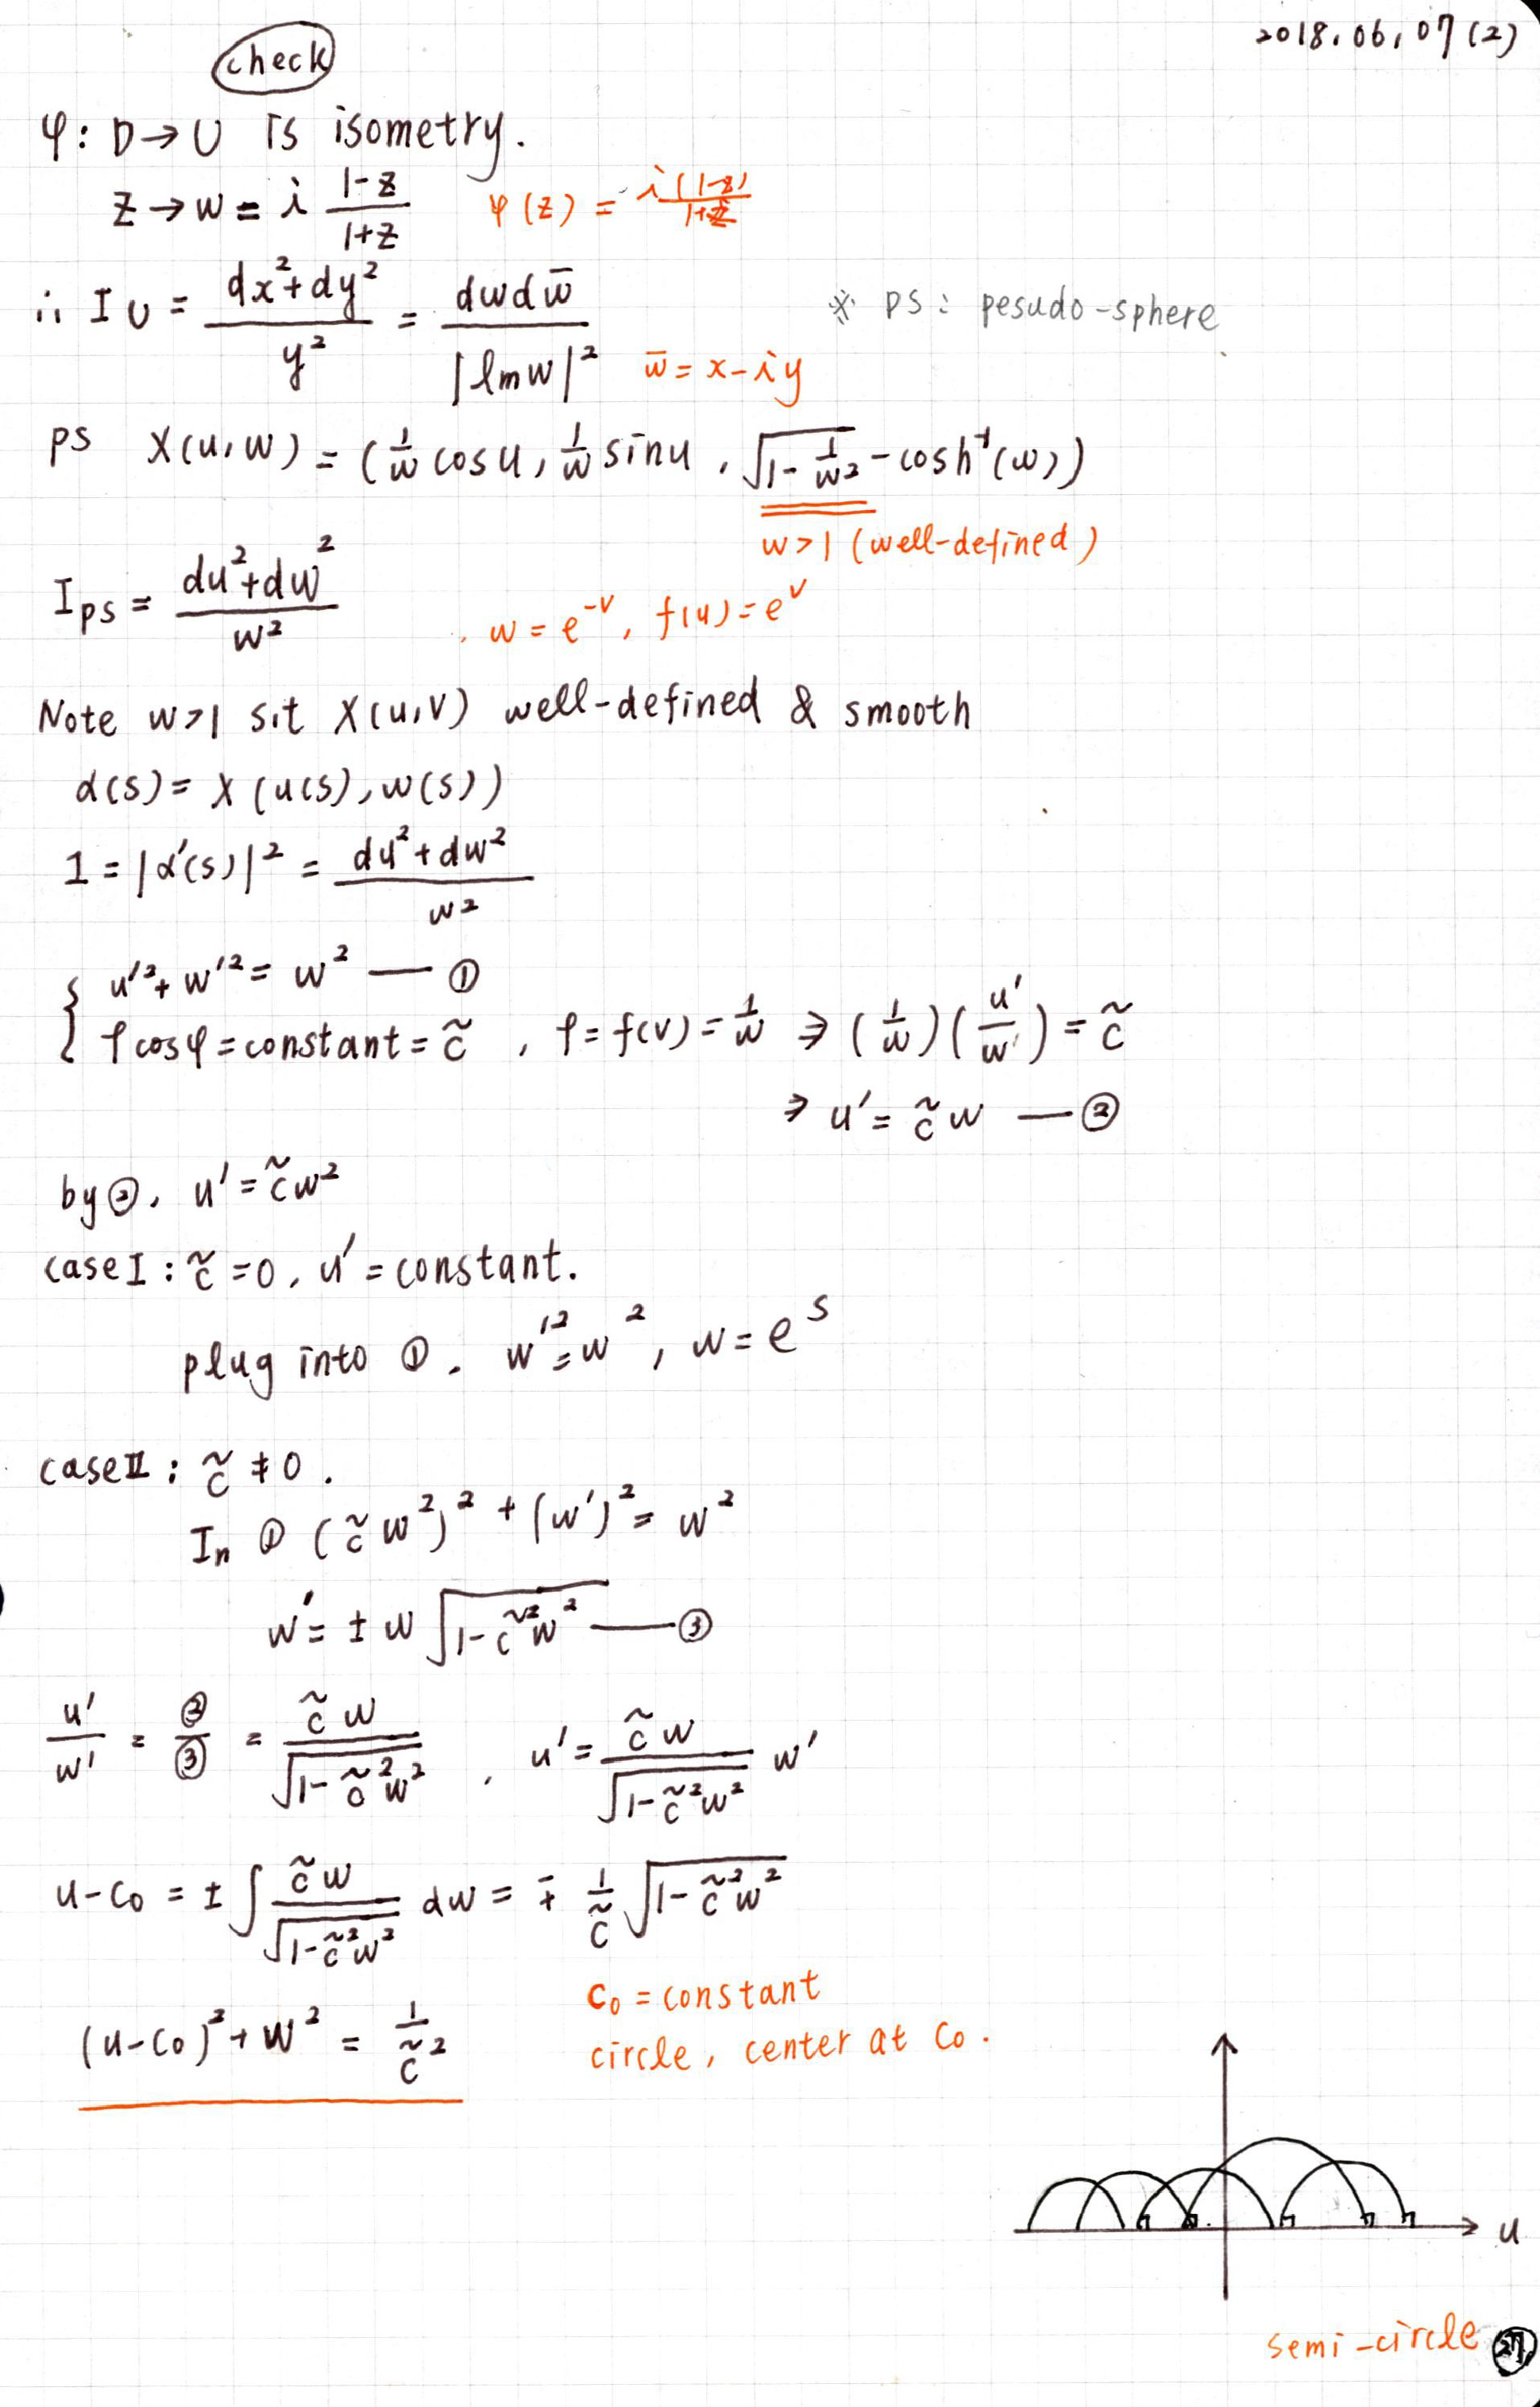 2018.06.07 (2)
check
φ: D→U is isometry.
z→w = i (1-z)/(1+z)   φ(z) = i(1-z)/(1+z)
∴ I_U = (dx²+dy²)/y² = dwdw̄/|Imw|²   w̄ = x-iy   ※ ps: pesudo-sphere
ps X(u,w) = (1/w cosu, 1/w sinu, √(1-1/w²) - cosh⁻¹(w))
w>1 (well-defined)
I_ps = (du²+dw²)/w²   , w = e^-v, f(u) = e^v
Note w>1 s.t X(u,v) well-defined & smooth
α(s) = X(u(s), w(s))
1 = |α'(s)|² = (du²+dw²)/w²
{ u'²+w'² = w² — ①
ρcosφ = constant = c̃, ρ = f(v) = 1/w ⇒ (1/w)(u'/w) = c̃
⇒ u' = c̃w — ②
by②, u' = c̃w²
case I : c̃ = 0, u' = constant.
plug into ①. w'² = w², w = e^s
case II : c̃ ≠ 0.
In ① (c̃w²)² + (w')² = w²
w' = ± w √(1-c̃²w²) — ③
u'/w' = ②/③ = c̃w/√(1-c̃²w²), u' = c̃w/√(1-c̃²w²) w'
u-c₀ = ± ∫ c̃w/√(1-c̃²w²) dw = ∓ 1/c̃ √(1-c̃²w²)
c₀ = constant
(u-c₀)²+w² = 1/c̃²   circle, center at c₀.
u
semi-circle
27